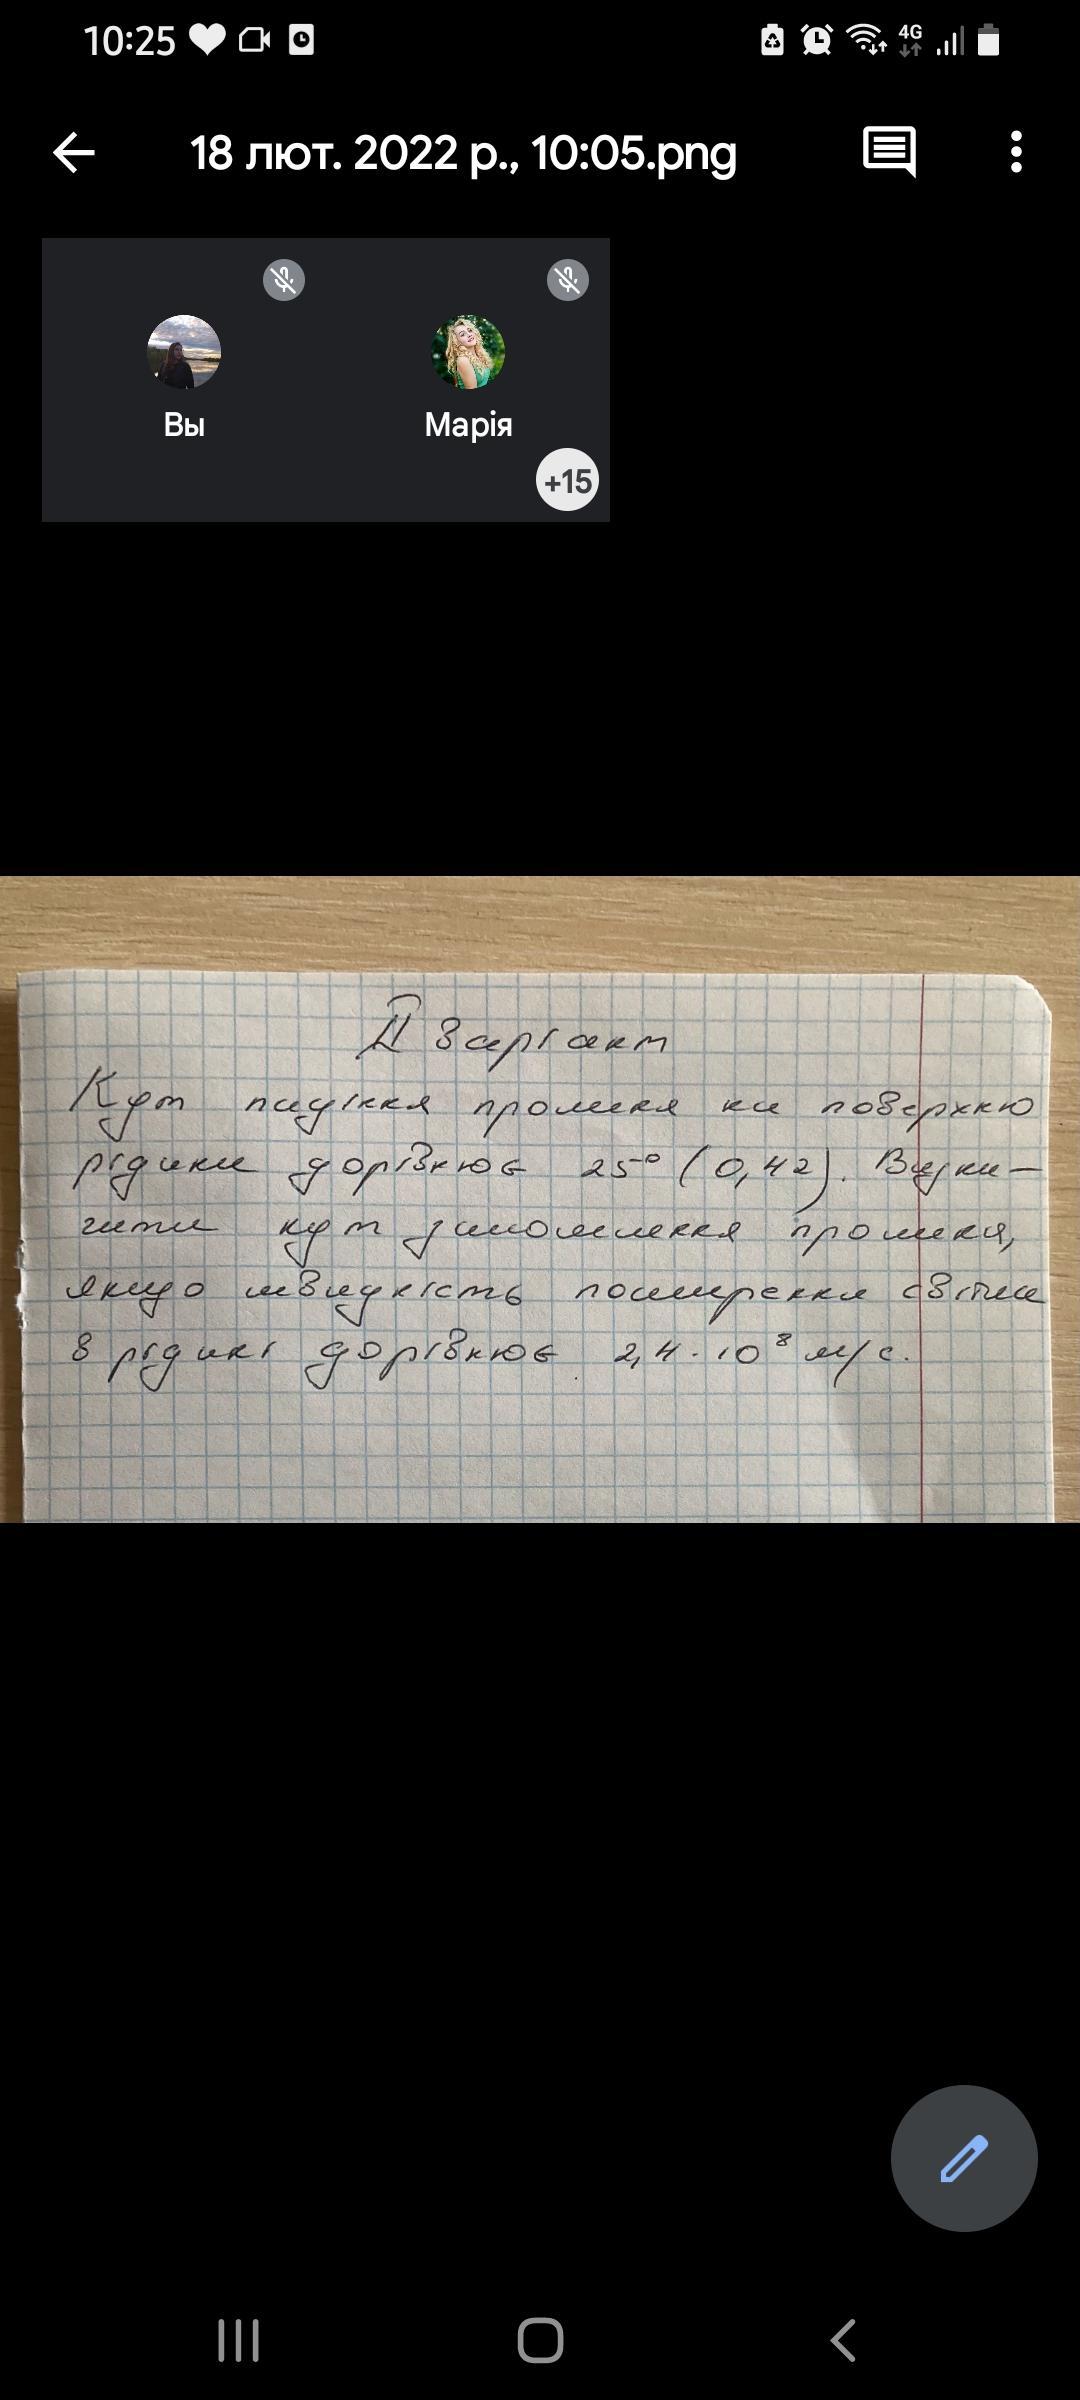 10:25
4G
18 лют. 2022 р., 10:05.png
Вы
Марія
+15
II варіант
Кут падіння променя на поверхню
рідини дорівнює 25° (0,42). Визна-
чити кут заломлення променя,
якщо швидкість поширення світла
в рідині дорівнює 2,4·10⁸ м/с.